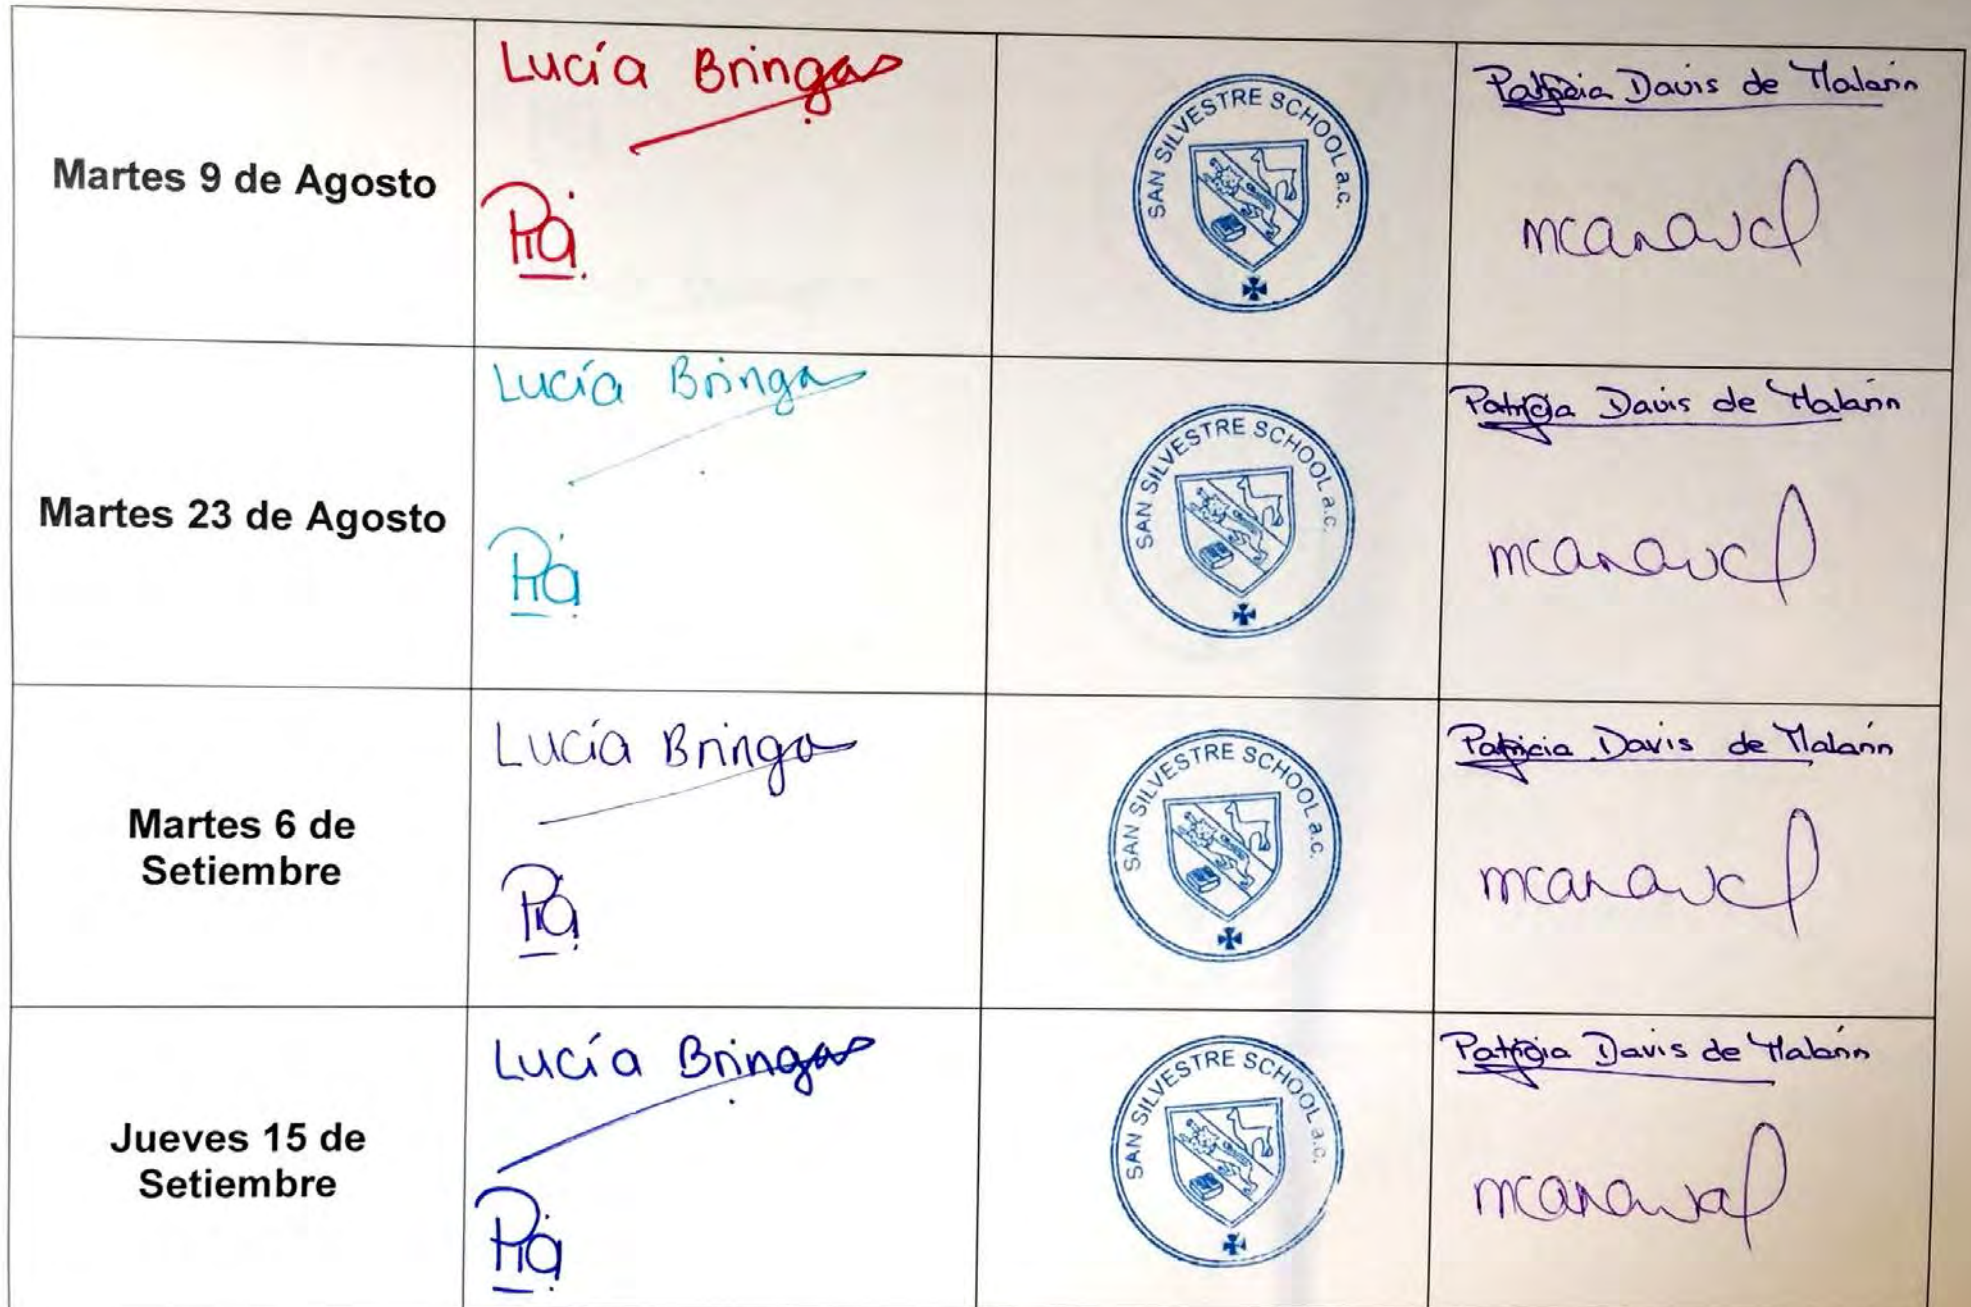 Martes 9 de Agosto
Lucía Bringas
Pía
SAN SILVESTRE SCHOOL a.c.
Patricia Davis de Malarín
mcanaval
Martes 23 de Agosto
Lucía Bringas
Pía
SAN SILVESTRE SCHOOL a.c.
Patricia Davis de Malarín
mcanaval
Martes 6 de
Setiembre
Lucía Bringas
Pía
SAN SILVESTRE SCHOOL a.c.
Patricia Davis de Malarín
mcanaval
Jueves 15 de
Setiembre
Lucía Bringas
Pía
SAN SILVESTRE SCHOOL a.c.
Patricia Davis de Malarín
mcanaval